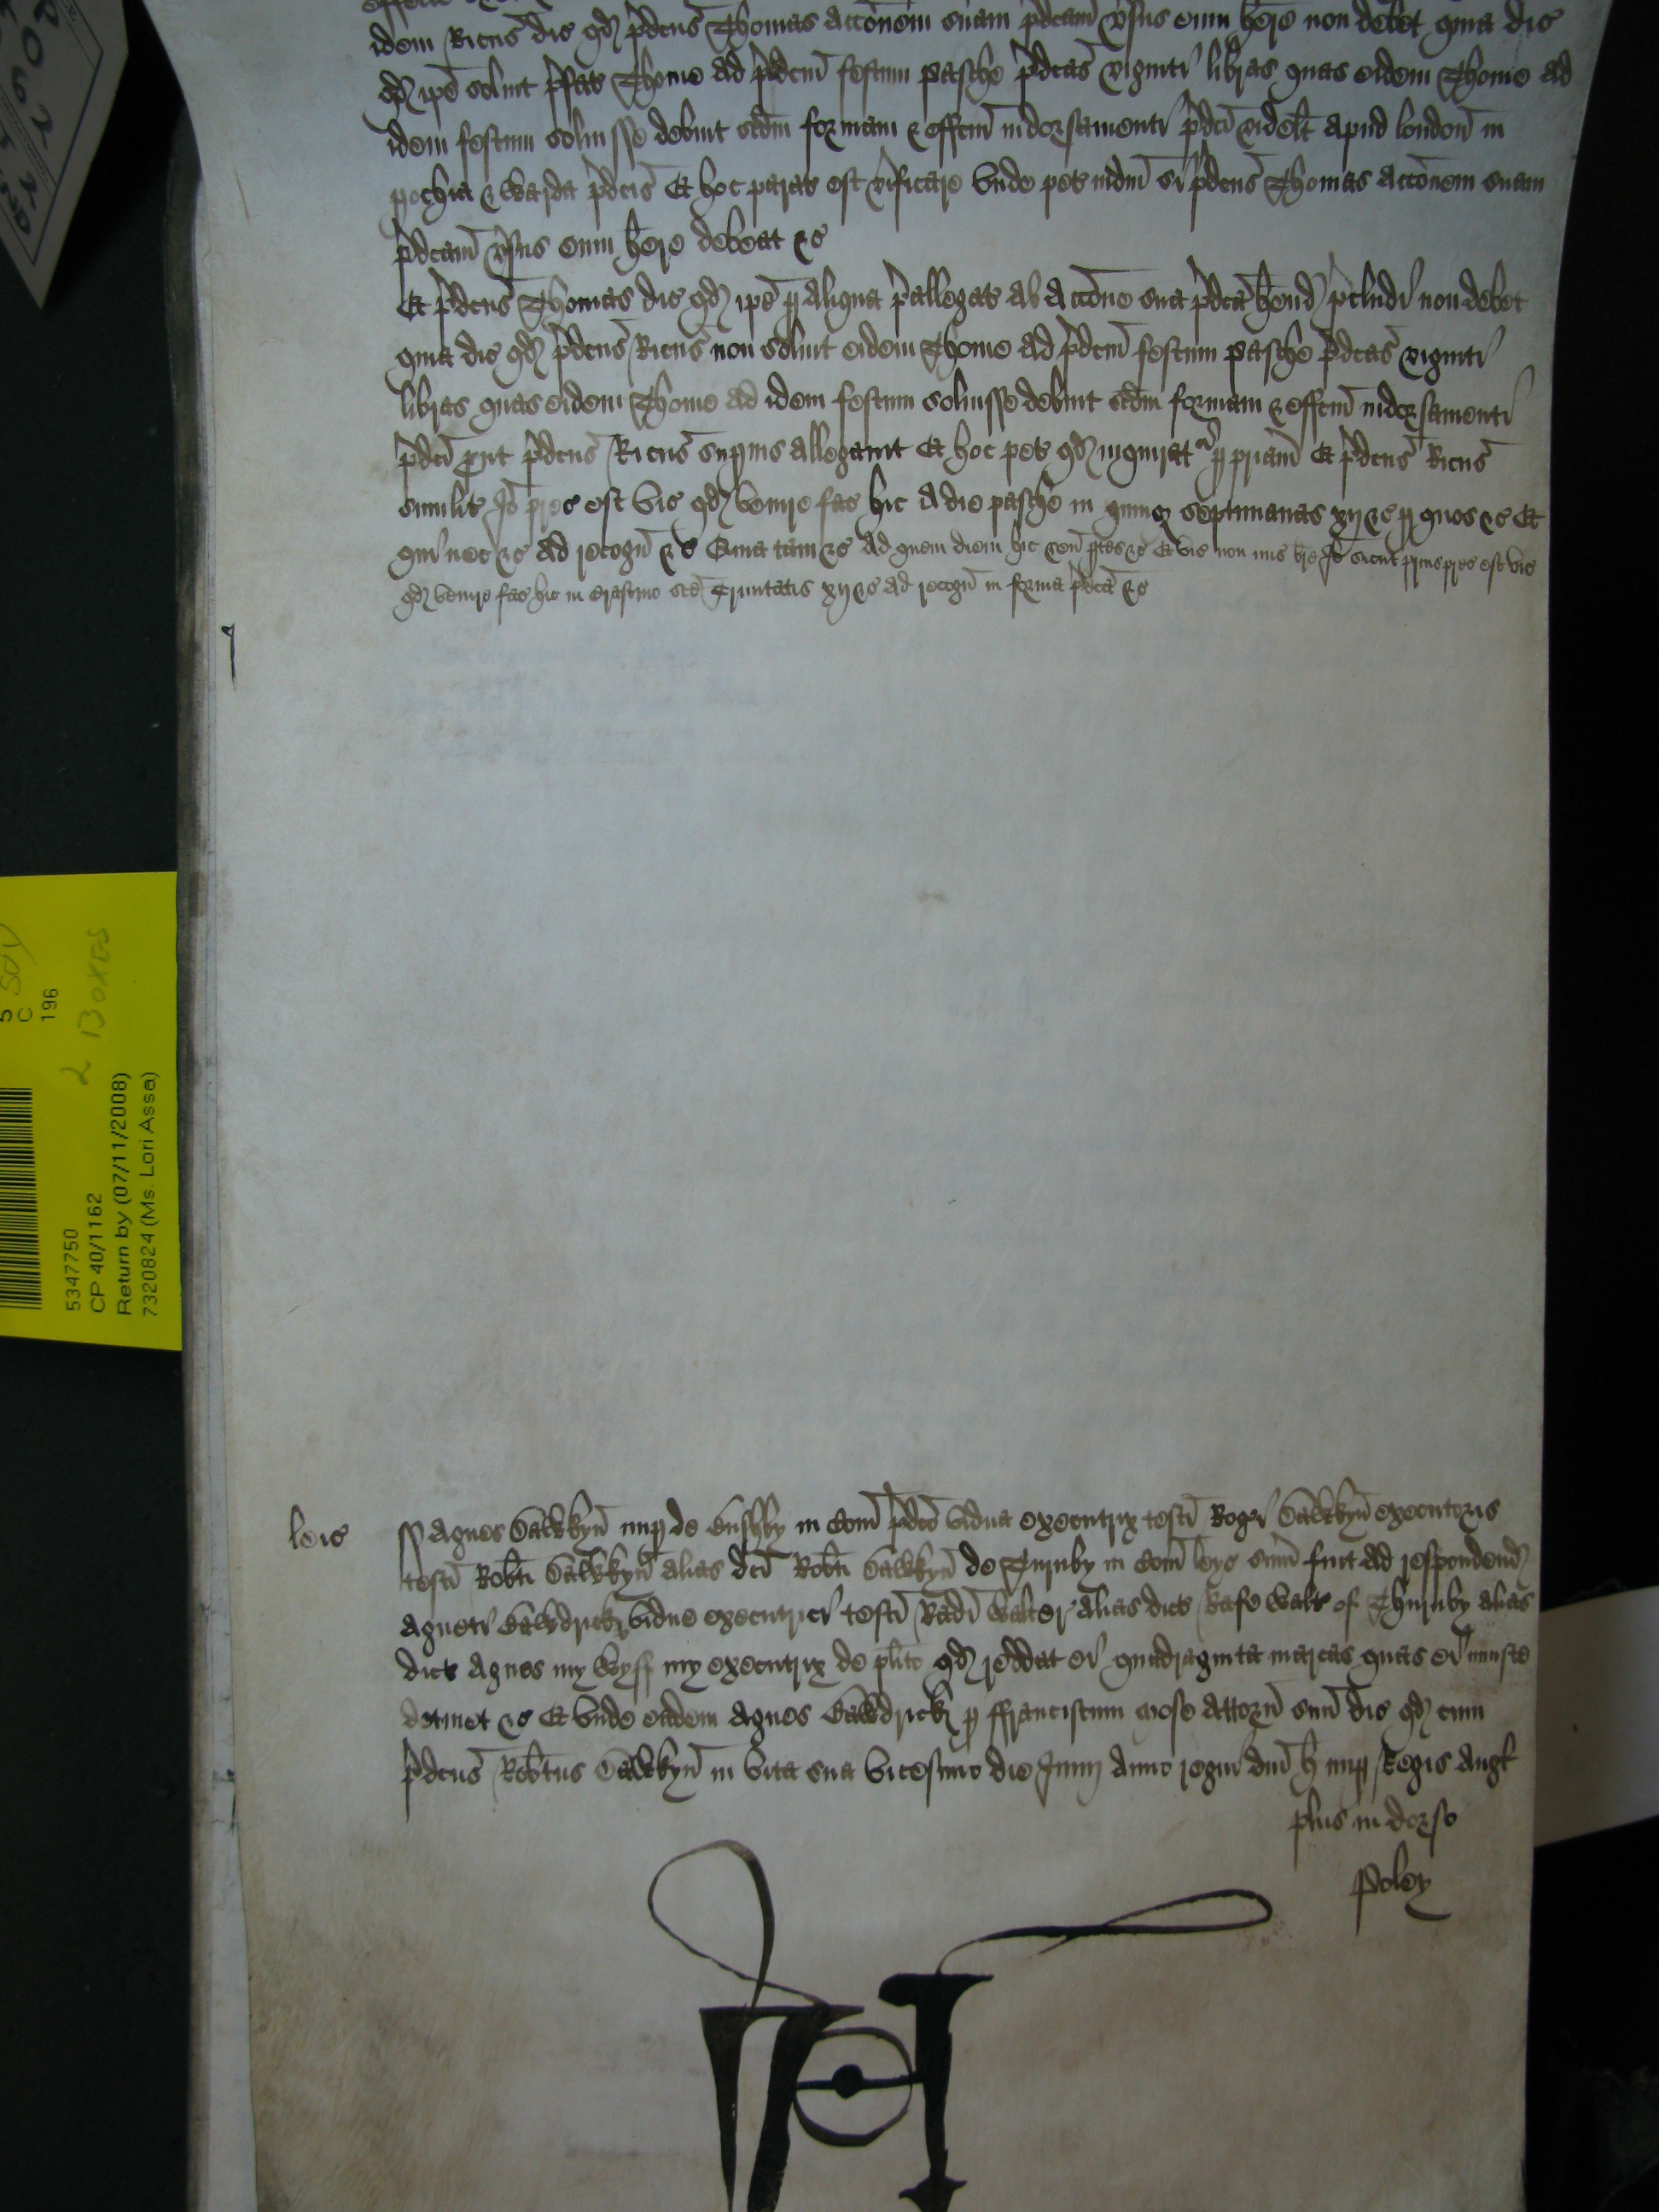 idem Ricus dic qd p̄dcus Thomas accōnem suam p̄dcam v̄sus eum h̄ere non debet quia dic
qd ip̄e solvit p̄fat Thome ad p̄dcm festum pasche p̄dcas viginti libras quas eidem Thome ad
idem festum solvisse debuit scdm formam & effcm indorsamenti p̄dci videlt apud london in
pochia & warda p̄dcis Et hoc parat est v̄ificare unde pet iudm si p̄dcus Thomas accōnem suam
p̄dcam v̄sus eum h̄ere debeat &c
Et p̄dcus Thomas dic qd ip̄e p aliqua p̄allegat ab accōne sua p̄dca h̄end p̄cludi non debet
quia dic qd p̄dcus Ricus non solvit eidem Thome ad p̄dcm festum pasche p̄dcas viginti
libras quas eidem Thome ad idem festum solvisse debuit scdm formam & effcm indorsamenti
p̄dci put p̄dcus Ricus supius allegavit Et hoc pet qd inquirat p pr̄iam Et p̄dcus Ricus
similit Io prec est vic qd venire fac hic a die pasche in quinq septimanas xij &c p quos &c Et
qui nec &c ad recogn &c Quia tam &c Ad quem diem hic ven ptes &c Et vic non mis br̄e Io sicut prius prec est vic
qd venire fac hic in crastino sc̄e Trinitatis xij &c ad recogn in forma p̄dca &c
leic
ss Agnes Dawkyn nup de Busshby in Com p̄dco vidua executrix testi Rogi Dawkyn executoris
testi Rob̄ti Dawkyn alias dci Rob̄ti Dawkyn de Turnby in Com leyc sum fuit ad respondend
Agneti vidue executrici testi Radi Walter alias dict Rafe Walt of Thurnby alias
dict Agnes my wyff my executrix de plito qd reddat ei quadraginta marcas quas ei iniuste
detinet &c Et unde eadem Agnes p ffranciscum mose attorn suu dic qd cum
p̄dcus Rob̄tus Dawkyn in vita sua vicesimo die Junij anno regni dni h nup Regis Angl
plus in dorso
Poley
5347750
CP 40/1162
Return by (07/11/2008)
7320824 (Ms. Lori Assa)
196
2 BOXES